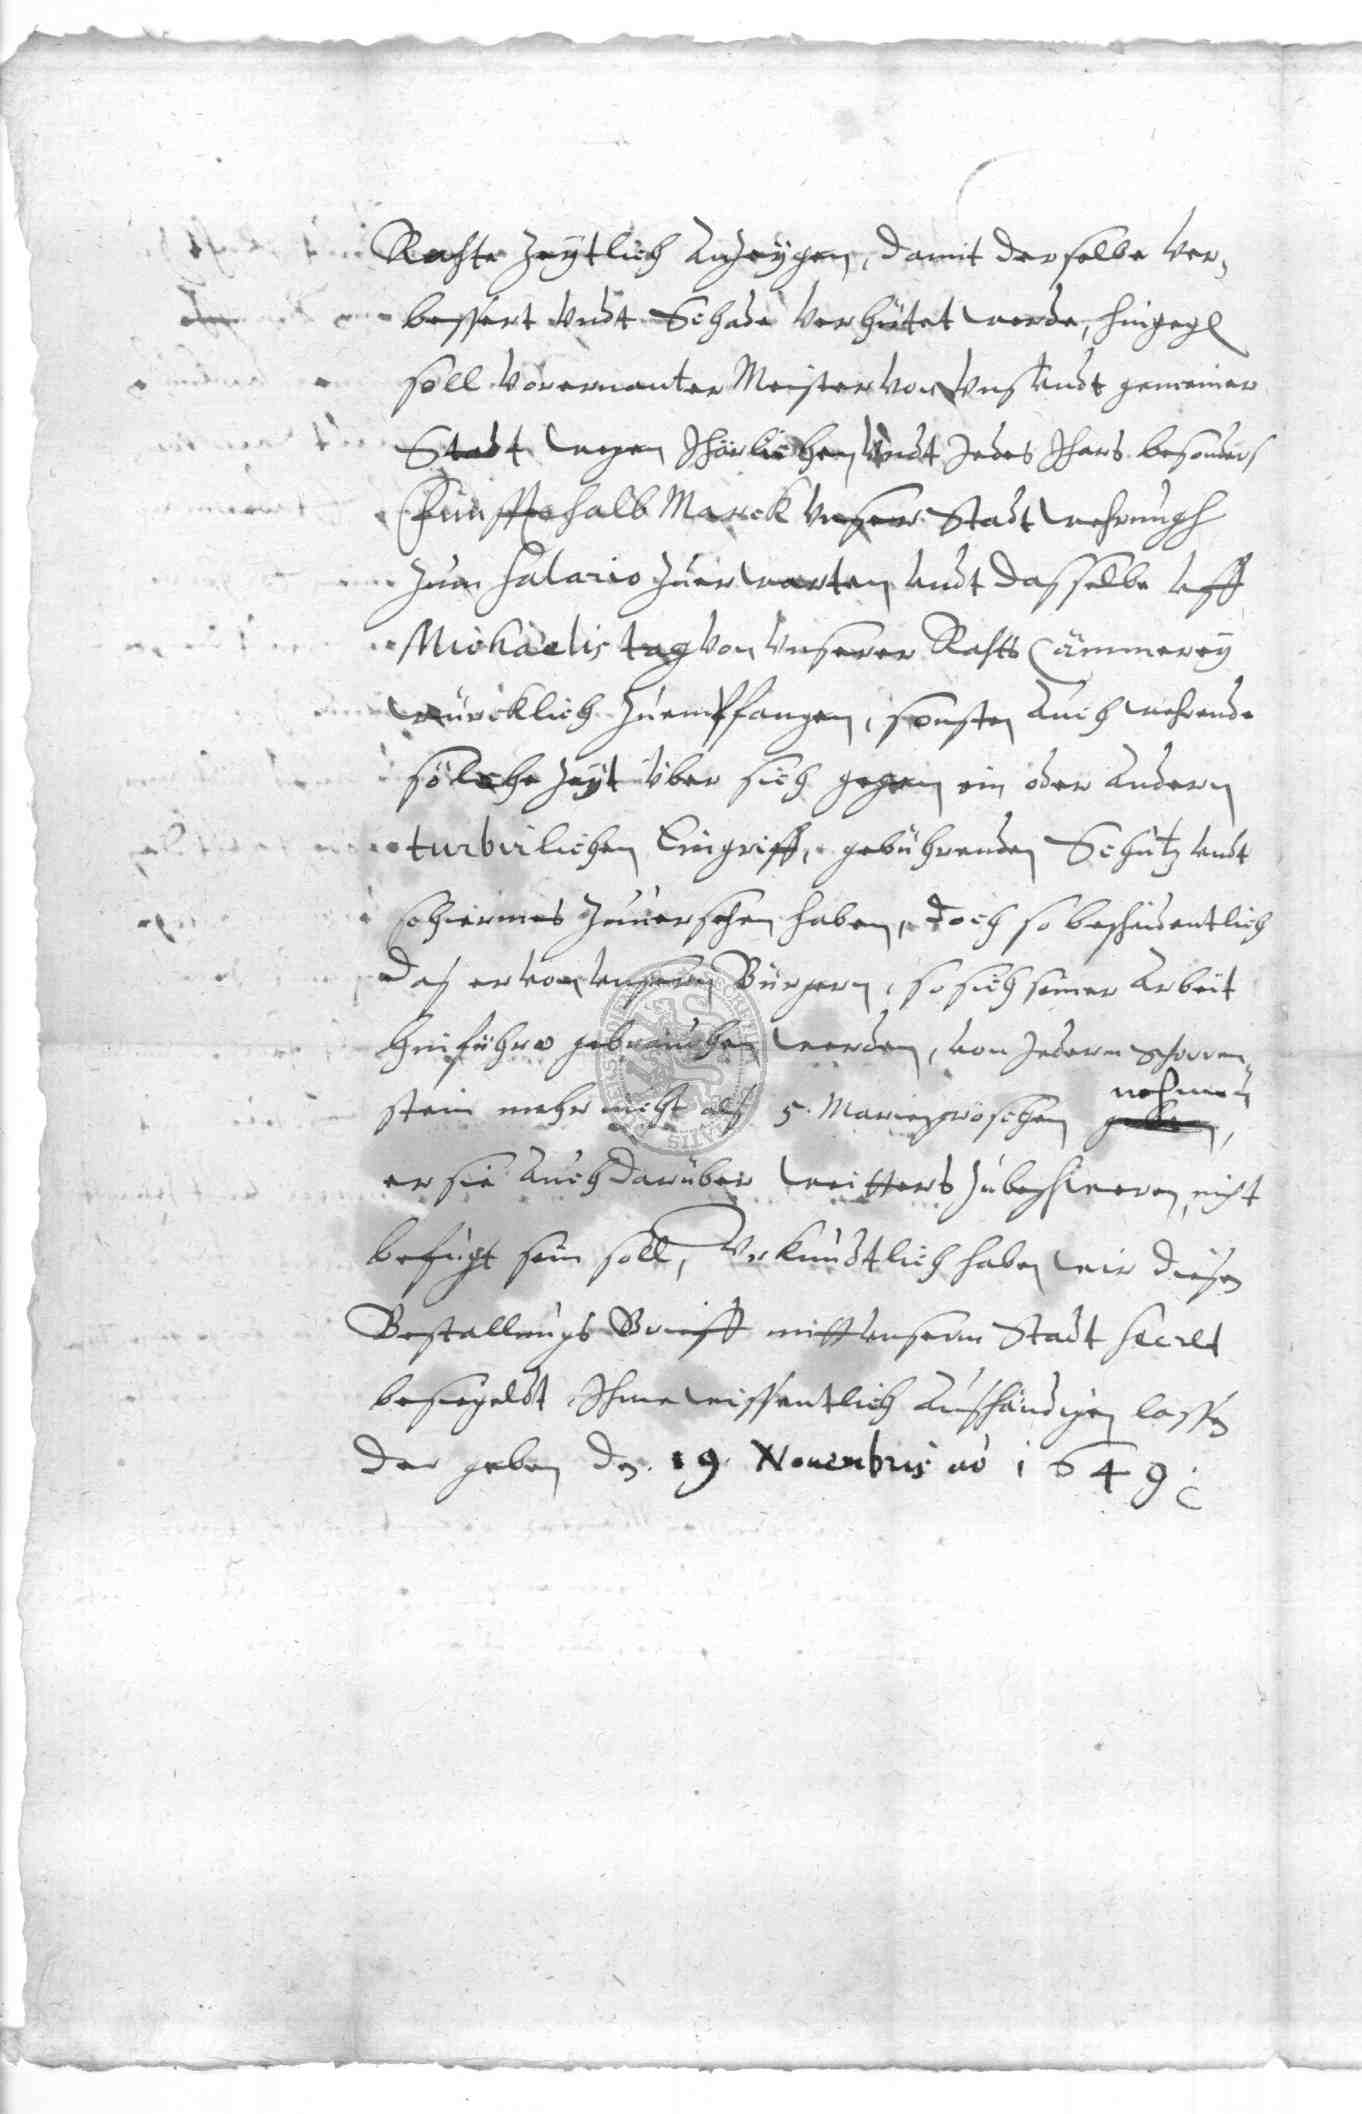 Rahte zeytlich anzeygen, damit derselbe ver¬
bessert undt Schade verhütet werde, hingegen
soll vorernanter Meister von unß undt gemeiner
Stadt wegen Jhärlichen undt Jedes Jhars besonders
Fünfftehalb Marck unser Stadt wehrungh
zum salario zuerwarten undt dasselbe uff
Michaelis tag von unserer Rahts Cämmerey
würcklich zuempfangen, sonsten auch wehrende
sölche zeyt über sich gegen ein oder andern
turbirlichen Eingriff, gebührenden Schutz undt
schirmes zuuersehen haben, doch so bescheidentlich
daß er von unsern Bürgern, so sich seiner Arbeit
hinführo gebrauchen werden, von Jederm Schorren¬
stein mehr nicht alß 5. Mariengröschen nehmen
er sie auch darüber weitters zubeschweren nicht
befugt sein soll, Urkundtlich haben wir diesen
Bestallungs Brieff mitt unserm Stadt secret
besiegeldt Ihme wissentlich außhändigen lassen
Der geben den 19. Nouembris ao 1649